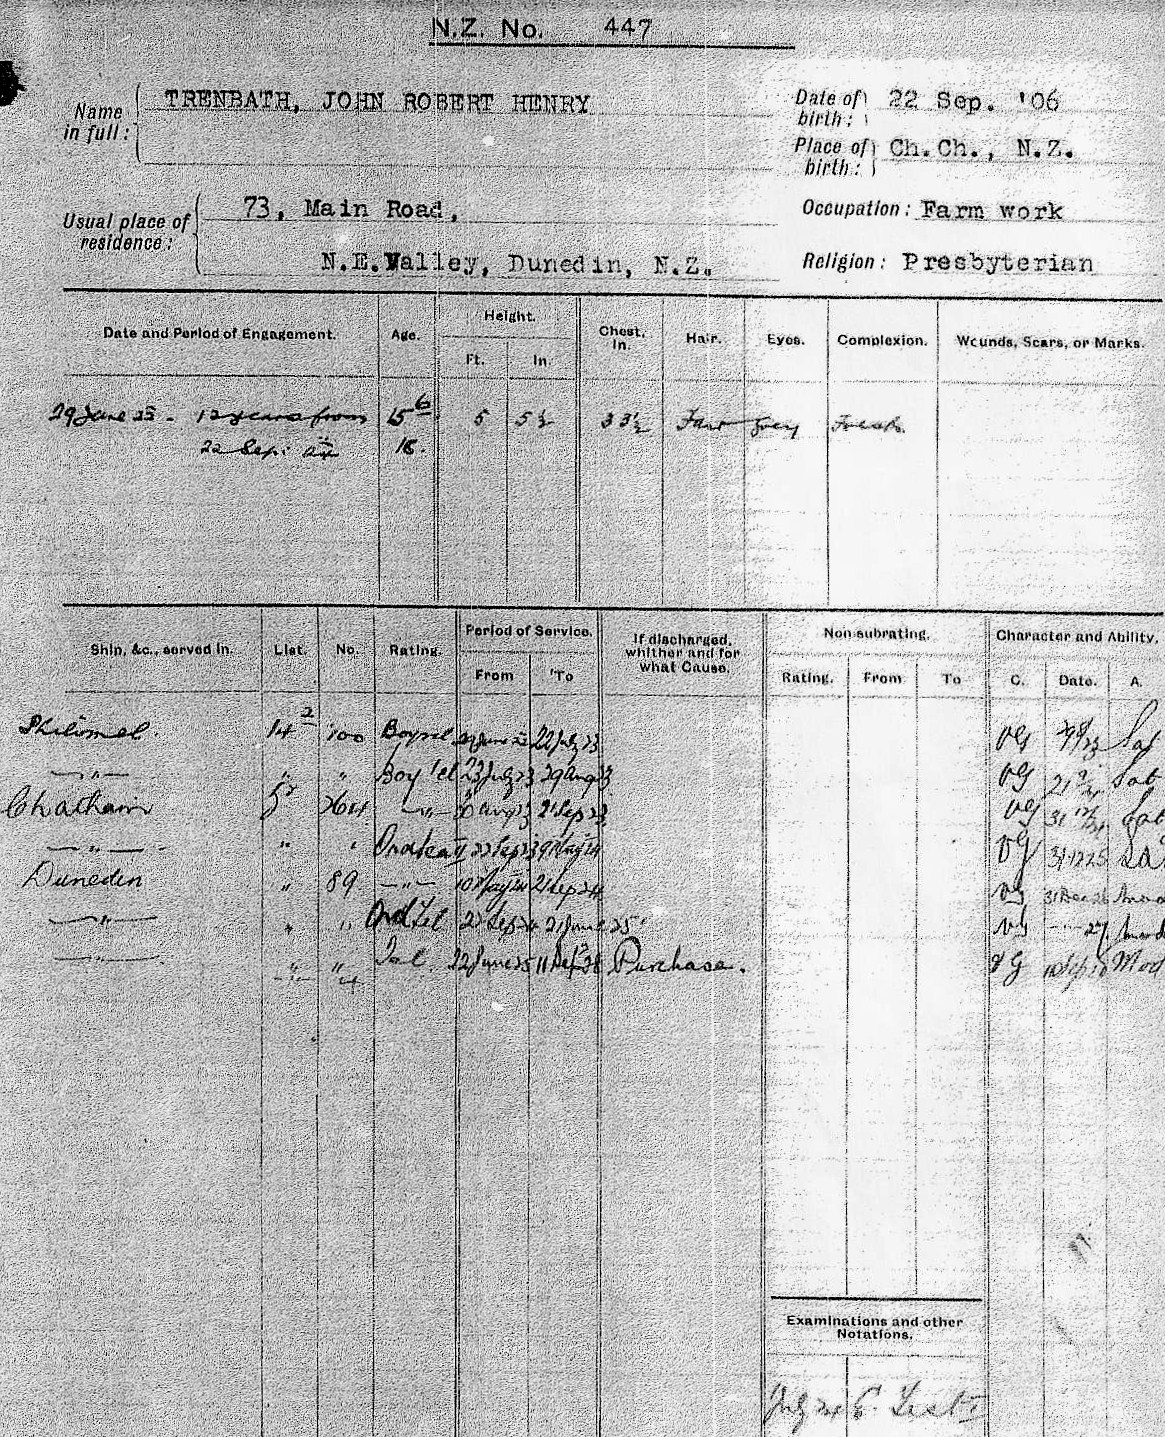 N.Z. No. 447
Name in full: TRENBATH, JOHN ROBERT HENRY
Date of birth: 22 Sep. '06
Place of birth: Ch.Ch., N.Z.
Usual place of residence: 73, Main Road,
N.E.Valley, Dunedin, N.Z.
Occupation: Farm work
Religion: Presbyterian
Date and Period of Engagement. Age. Height. Ft. In. Chest. In. Hair. Eyes. Complexion. Wounds, Scars, or Marks.
29 June 23 - 12 years from 15 6 5 5½ 33½ Fair Grey Fresh
22 Sep: 24 18.
Ship, &c., served in. List. No. Rating. Period of Service. From To If discharged, whither and for what Cause. Non-subrating. Rating. From To Character and Ability. C. Date. A.
Philomel 14 2 100 Boy 22 July 23 VG Sat
—"— " " Boy Tel 23 July 23 29 Aug 23 VG Sat
Chatham 5 30 Aug 23 21 Sep 23 VG Sat
—"— " " Ord 22 Sep 23 VG
Dunedin " 89 —"— 10 May 24 21 Sep 24 VG 31 Dec
—"— " " Ord Tel 22 Sep 24 21 June 25 VG 27
" " Tel 22 June 25 11 Sep 28 Purchase. VG Mod
Examinations and other Notations.
July 24 E. Test I